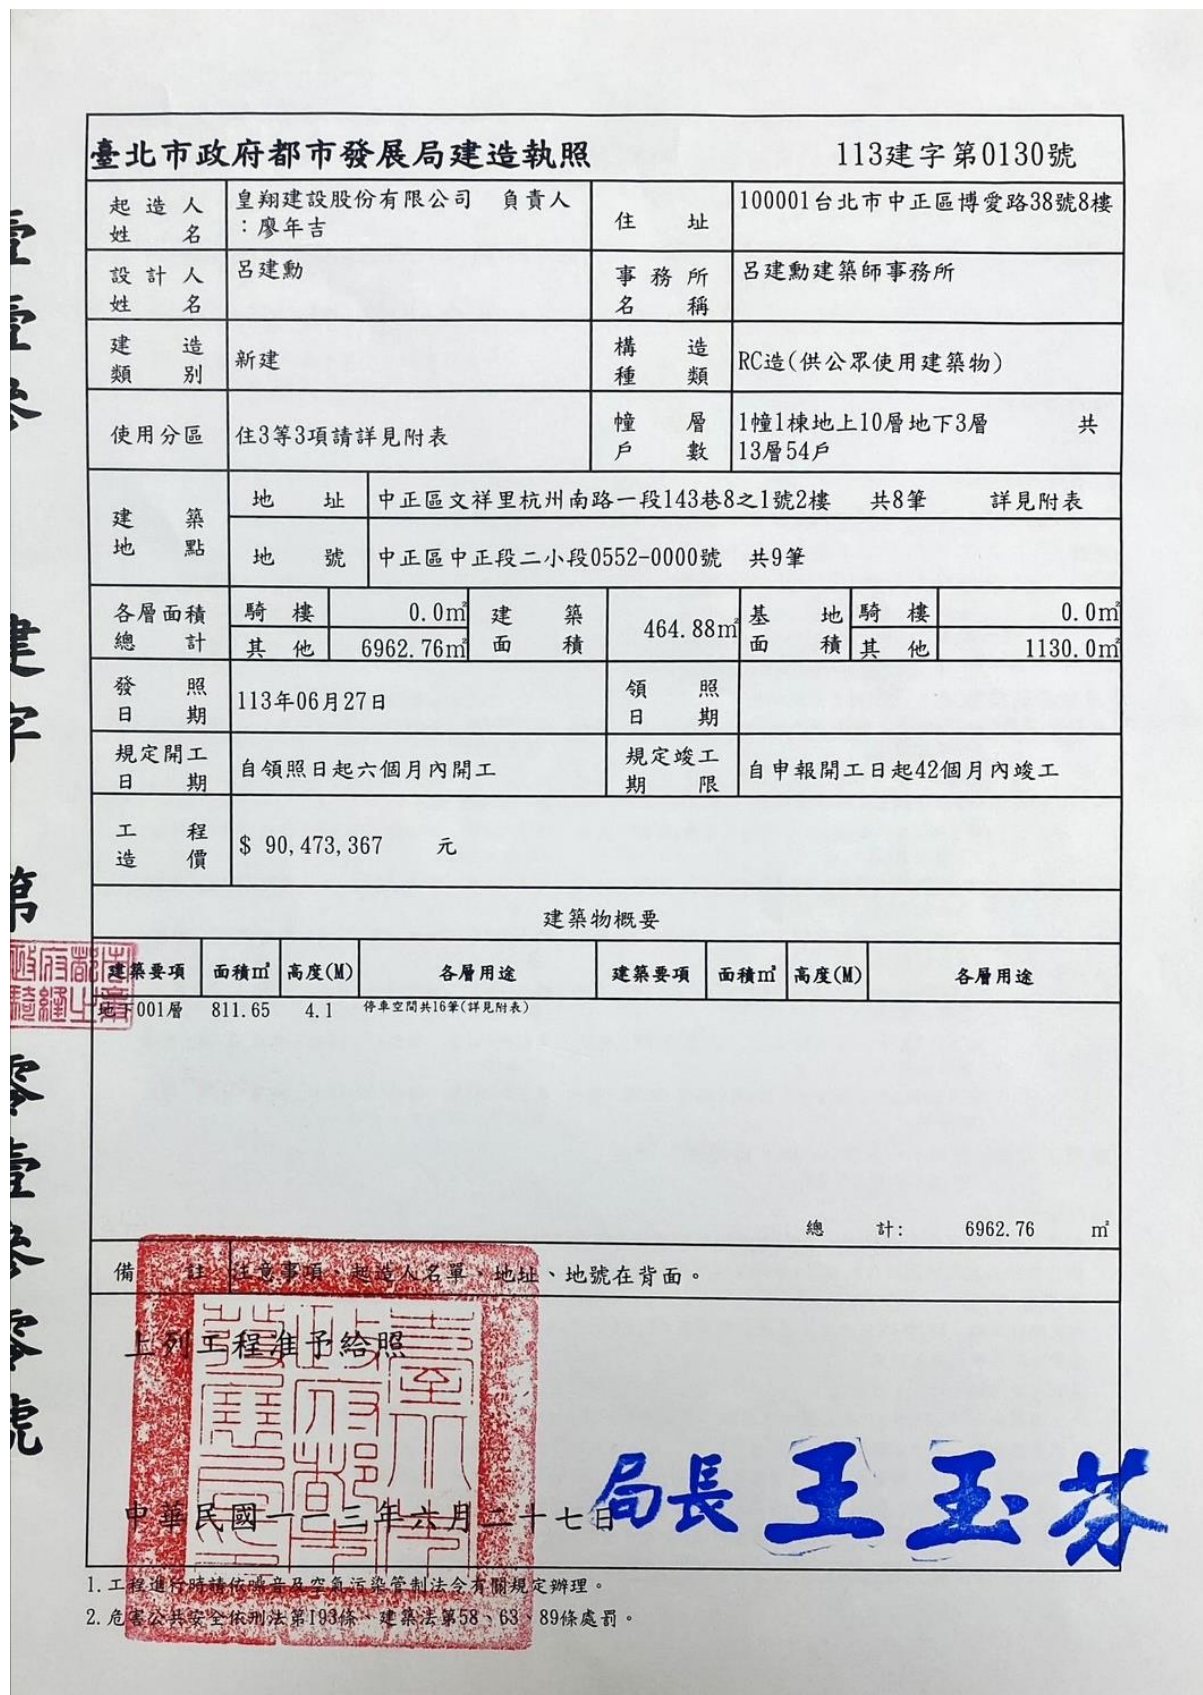 臺北市政府都市發展局建造執照 113建字第0130號
起造人姓名 皇翔建設股份有限公司 負責人：廖年吉 住址 100001台北市中正區博愛路38號8樓
設計人姓名 呂建勳 事務所名稱 呂建勳建築師事務所
建造類別 新建 構造種類 RC造(供公眾使用建築物)
使用分區 住3等3項請詳見附表 幢層戶數 1幢1棟地上10層地下3層 共13層54戶
建築地點 地址 中正區文祥里杭州南路一段143巷8之1號2樓 共8筆 詳見附表
地號 中正區中正段二小段0552-0000號 共9筆
各層面積總計 騎樓 0.0㎡ 其他 6962.76㎡ 建築面積 464.88㎡ 基地面積 騎樓 0.0㎡ 其他 1130.0㎡
發照日期 113年06月27日 領照日期
規定開工日期 自領照日起六個月內開工 規定竣工期限 自申報開工日起42個月內竣工
工程造價 $ 90,473,367 元
建築物概要
建築要項 面積㎡ 高度(M) 各層用途 建築要項 面積㎡ 高度(M) 各層用途
地下001層 811.65 4.1 停車空間共16筆(詳見附表)
總計: 6962.76 ㎡
備註 注意事項、起造人名單、地址、地號在背面。
上列工程准予給照
中華民國一一三年六月二十七日
局長 王玉芬
1.工程進行時請依噪音及空氣污染管制法令有關規定辦理。
2.危害公共安全依刑法第193條、建築法第58、63、89條處罰。
壹壹參 建字 第 零壹參零號
臺北市政府都市發展局印